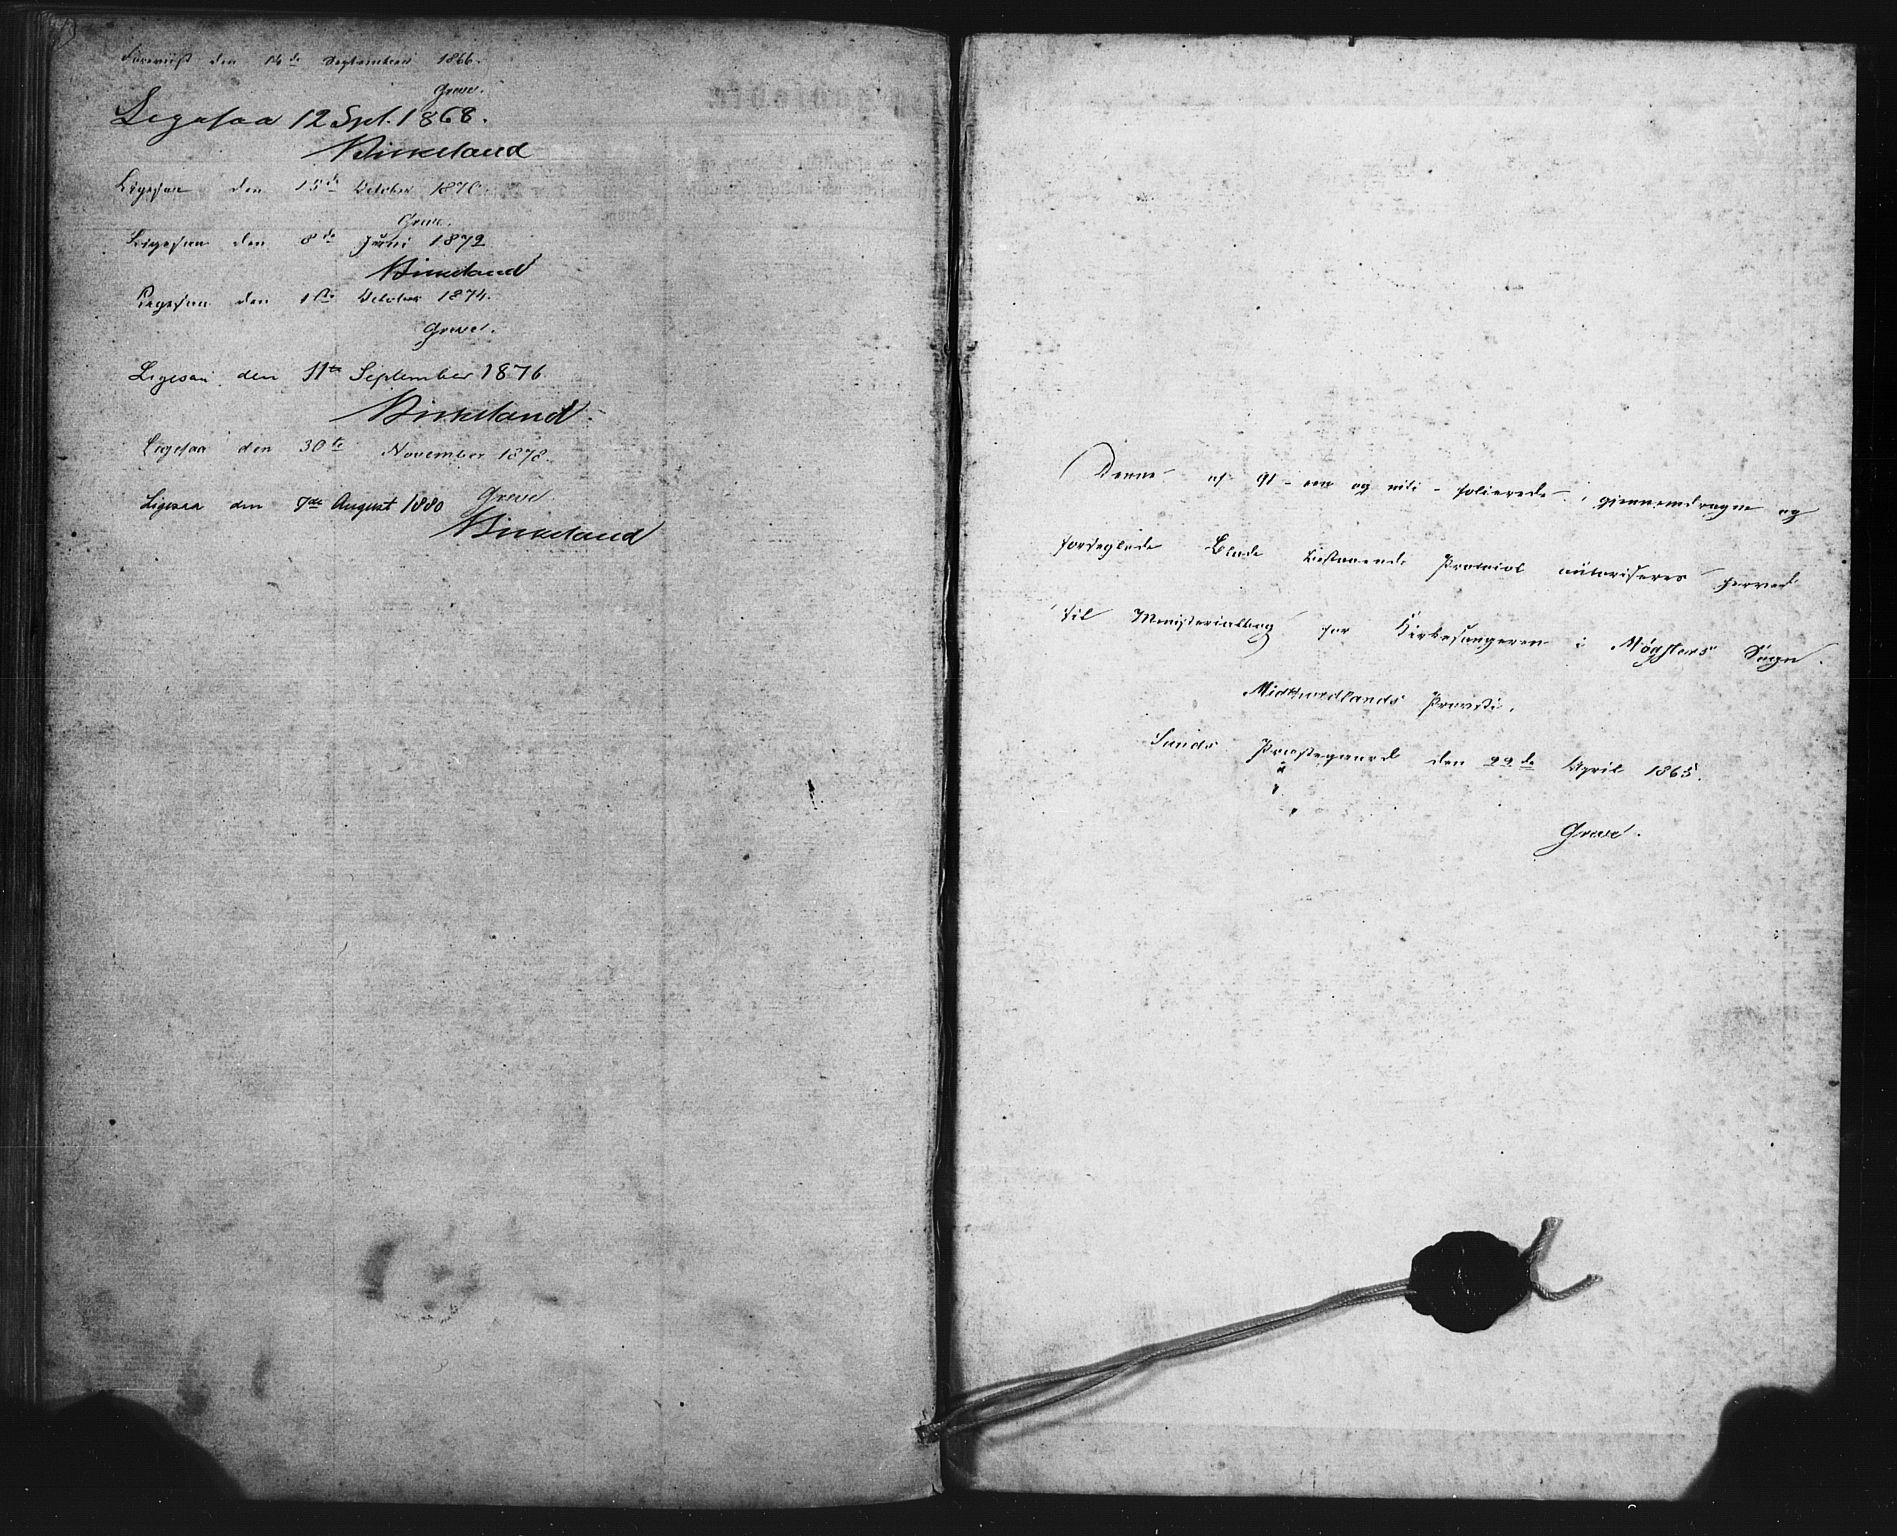 Foreviist den 14de September 1866.
Greve.
Ligesaa 12 Spt. 1868.
Birkeland
Ligesaa den 15de October 1870.
Greve.
Ligesaa den 8de Juni 1872
Birkeland
Ligesaa den 1ste October 1874.
Greve.
Ligesaa den 11te September 1876
Birkeland.
Ligesaa den 30te November 1878.
Greve
Ligesaa den 7de August 1880
Birkeland
Denne af 91 - een og niti - folierede, gjennemdragne og
forseglede Blade bestaaende Protocol autoriseres herved
til Ministerialbog for Kirkesangeren i Møgsters Sogn.
Midthordlands Provsti,
Sunds Præstegaard den 22de April 1865.
Greve.